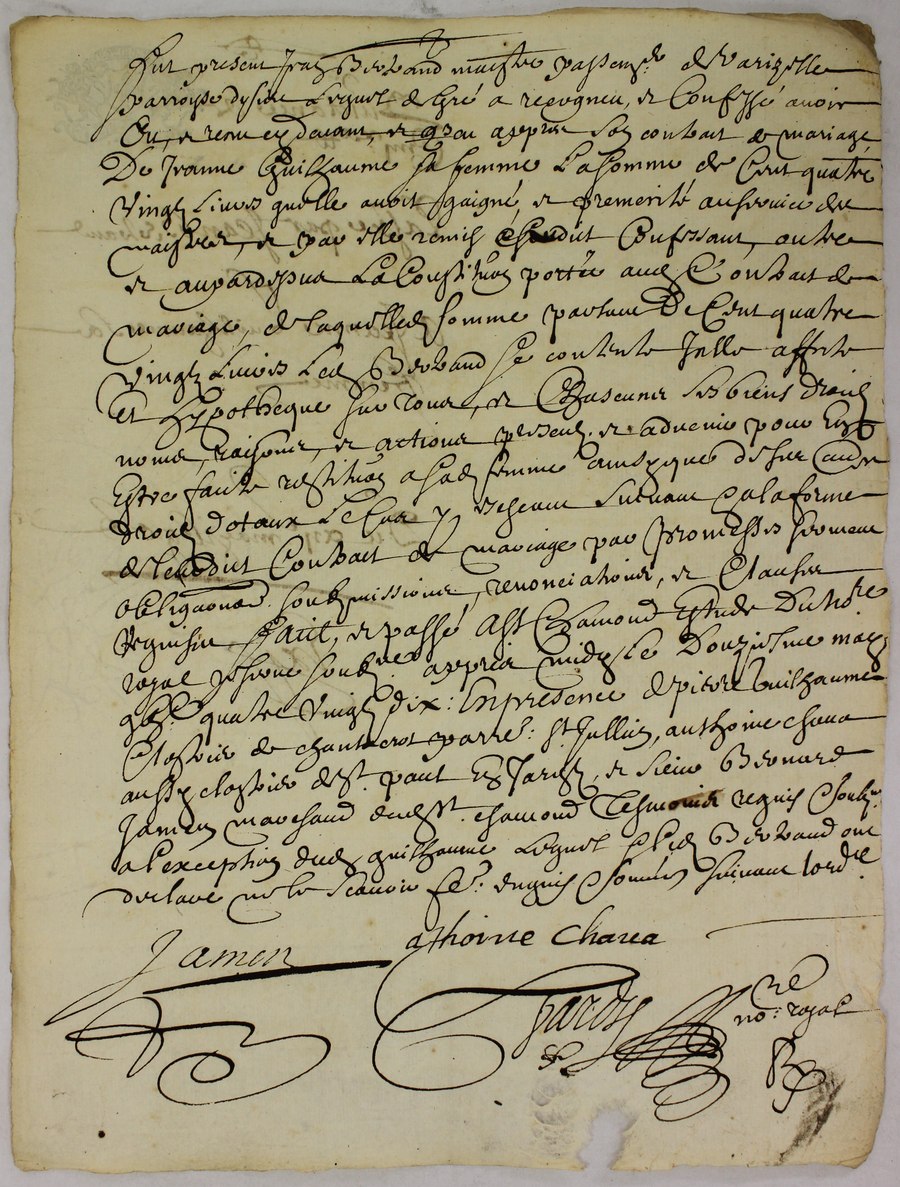 Fut present Jean Berband maistre passem.r de varizelle
parroysse d'Izieu Lequel de gré a recogneu, et Confessé avoir
Eu, et receu cy devant, et apprès son contrat de mariage,
De Jeanne Guilhaume sa femme La somme de Cent quatre
vingtz Livres quelle avoit gaigné, et premerité au service de
maistres, et par elle remis audit Confessant, outre
et aupardessus La Constituon portée aud Contrat de
mariage, de laquelled somme partant De Cent quatre
vingtz Livres Led Berband se contente Jcelle affecte
et hypotheque sur tous, et Chascuns ses biens droitz
noms, raisons, et actions presens, et advenir pour En
Estre faite restituon a sad femme ainsy que de ses autres
droitz dotaux Le Cas y escheant suivant la forme
dudict Contrat de mariage par promesses serment
obligaons soubmissions, renonciations, et Clauses
requises Faict, et passé a St Chamond Estude du no.re
royal hereditaire soub.né apprès midy le Douziesme may
quatre vingtz dix: En presence de pierre Guilhaume
Closvier de chantecrot parre: St Jullin, anthoine chava
aussy closvier de St. paul En Jarez, et sieur Bernard
Jamen marchand dud St. chamond Tesmoins requis Soub.né
a l'exception dud guilhaume Lequel et led Berband ont
declaré ne le scavoir fe. enquis Sommés suivant lord.e
Jamen
athoine Chava
no:re royal